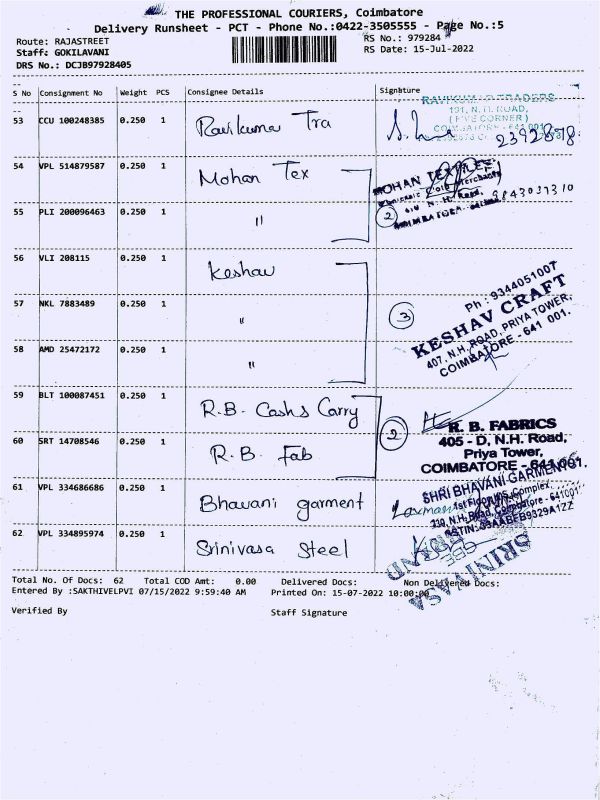 THE PROFESSIONAL COURIERS, Coimbatore
Delivery Runsheet - PCT - Phone No.:0422-3505555 - Page No.:5
Route: RAJASTREET
RS No.: 979284
Staff: GOKILAVANI
RS Date: 15-Jul-2022
DRS No.: DCJB97928405
S No Consignment No Weight PCS Consignee Details Signature
53 CCU 100248385 0.250 1 Ravikumar Tra
RAVIKUMAR TRADERS
191, N.H. ROAD,
(FIVE CORNER)
2392878
54 VPL 514879587 0.250 1 Mohan Tex
MOHAN TEXTILES
N. H. Road, 9843031310
55 PLI 200096463 0.250 1 "
2
COIMBATORE
56 VLI 208115 0.250 1 Keshav
57 NKL 7883489 0.250 1 "
3
Ph : 9344051007
KESHAV CRAFT
407, N.H. ROAD, PRIYA TOWER,
COIMBATORE - 641 001.
58 AMD 25472172 0.250 1 "
59 BLT 100087451 0.250 1 R.B. Cash & Carry
2
R. B. FABRICS
405 - D, N.H. Road,
Priya Tower,
COIMBATORE - 641 001.
60 SRT 14708546 0.250 1 R.B. Fab
61 VPL 334686686 0.250 1 Bhavani garment
SHRI BHAVANI GARMENTS
Ist Floor, Complex,
Laxman
330, N.H. Road, Coimbatore - 641001.
GSTIN: 33AABEB9329A1ZZ
62 VPL 334895974 0.250 1 Srinivasa Steel
SRINIVASA
Total No. Of Docs: 62 Total COD Amt: 0.00 Delivered Docs: Non Delivered Docs:
Entered By :SAKTHIVELPVI 07/15/2022 9:59:40 AM Printed On: 15-07-2022 10:00:00
Verified By Staff Signature